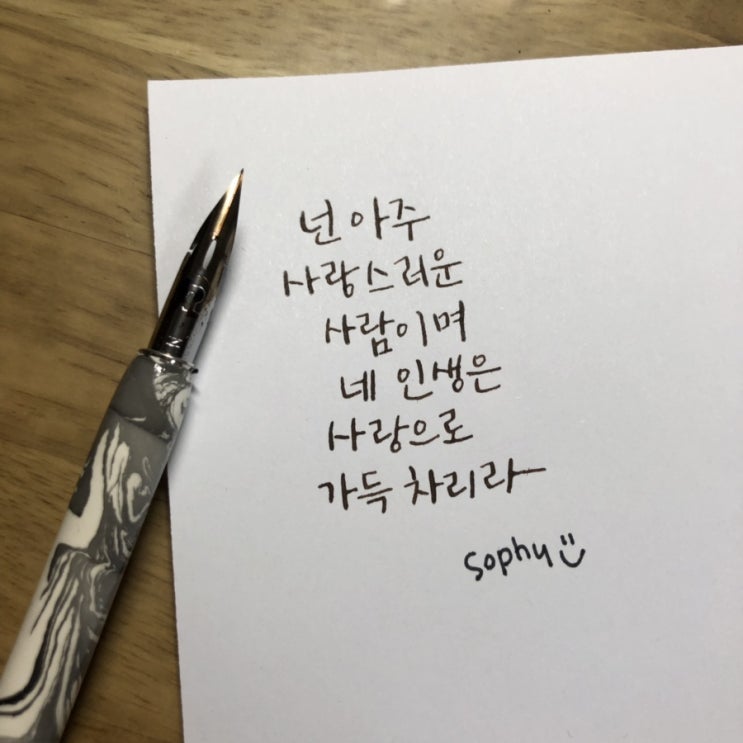 넌 아주
사랑스러운
사람이며
네 인생은
사랑으로
가득 차리라
sophy